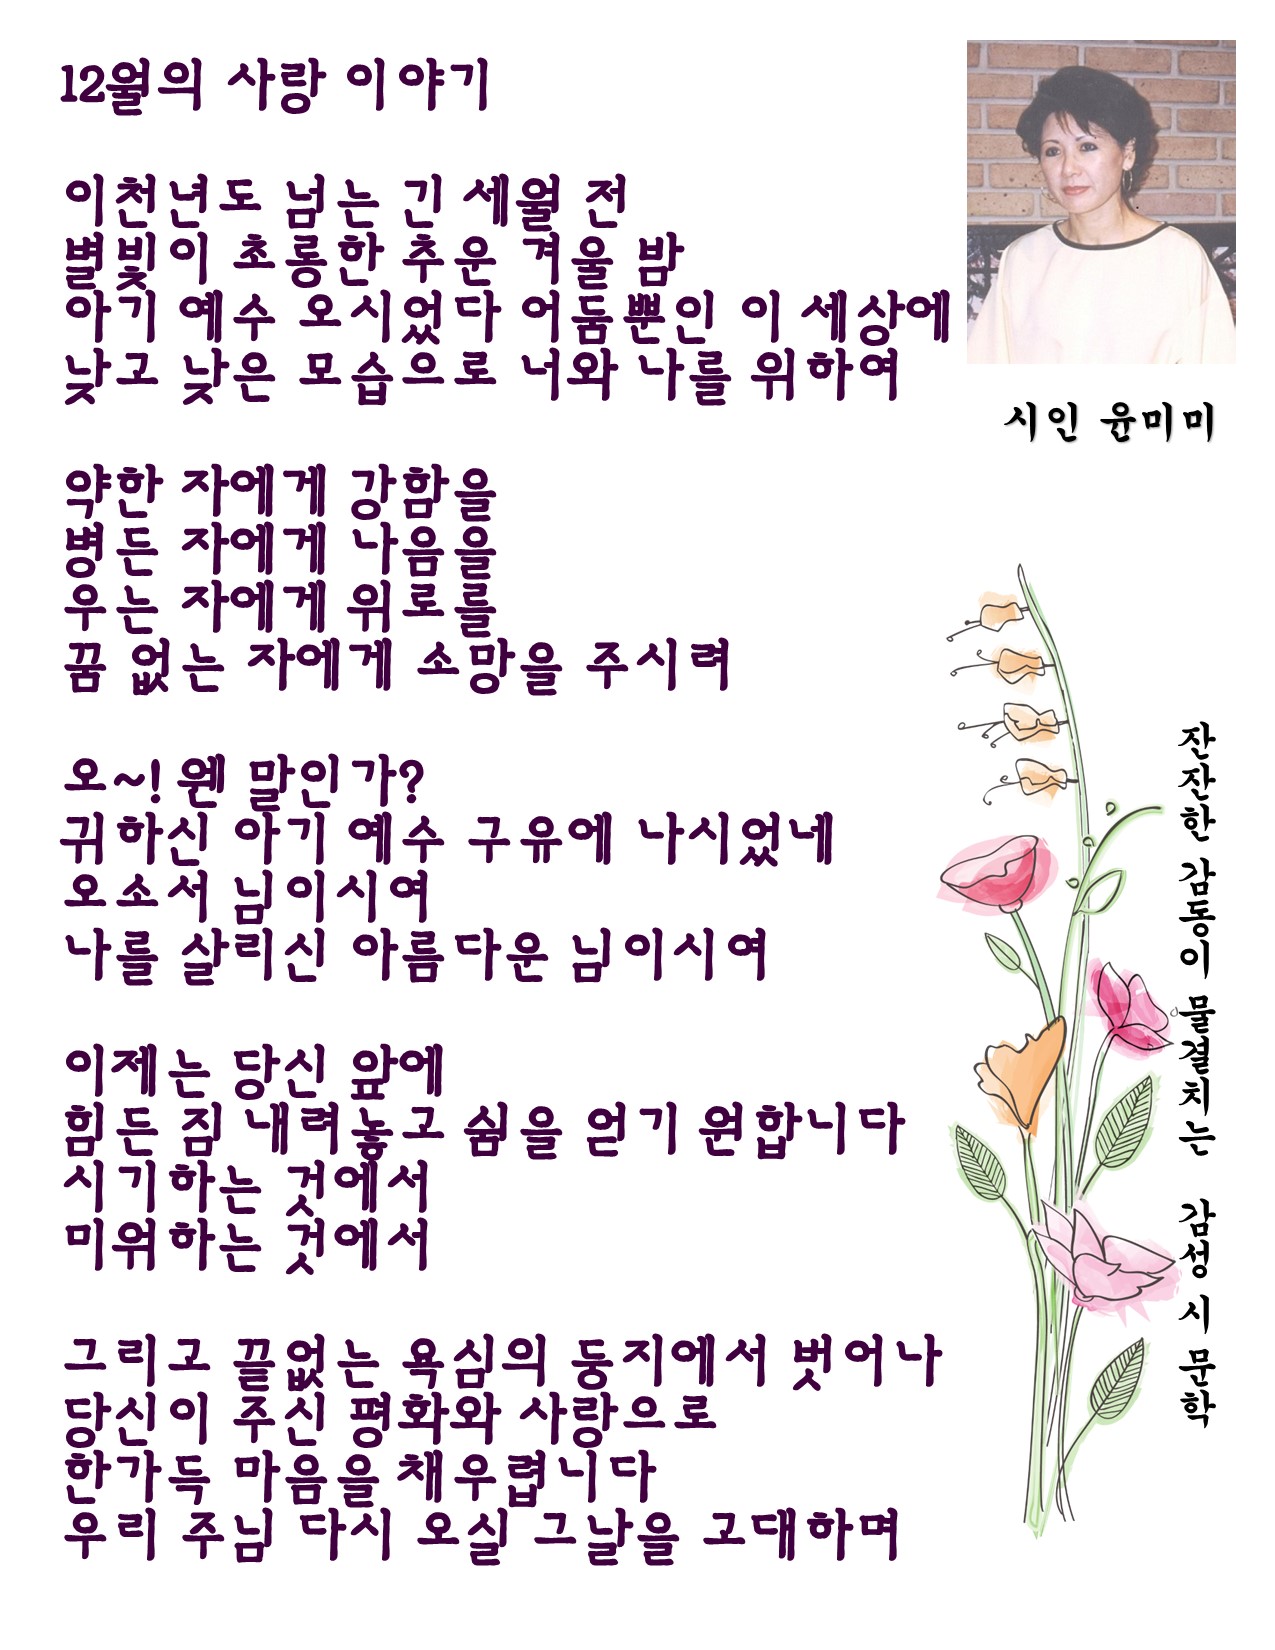 12월의 사랑 이야기
이천년도 넘는 긴 세월 전
별빛이 초롱한 추운 겨울 밤
아기 예수 오시었다 어둠뿐인 이 세상에
낮고 낮은 모습으로 너와 나를 위하여
약한 자에게 강함을
병든 자에게 나음을
우는 자에게 위로를
꿈 없는 자에게 소망을 주시려
오~! 웬 말인가?
귀하신 아기 예수 구유에 나시었네
오소서 님이시여
나를 살리신 아름다운 님이시여
이제는 당신 앞에
힘든 짐 내려놓고 쉼을 얻기 원합니다
시기하는 것에서
미워하는 것에서
그리고 끝없는 욕심의 둥지에서 벗어나
당신이 주신 평화와 사랑으로
한가득 마음을 채우렵니다
우리 주님 다시 오실 그날을 고대하며
시인 윤미미
잔잔한 감동이 물결치는 감성 시 문학